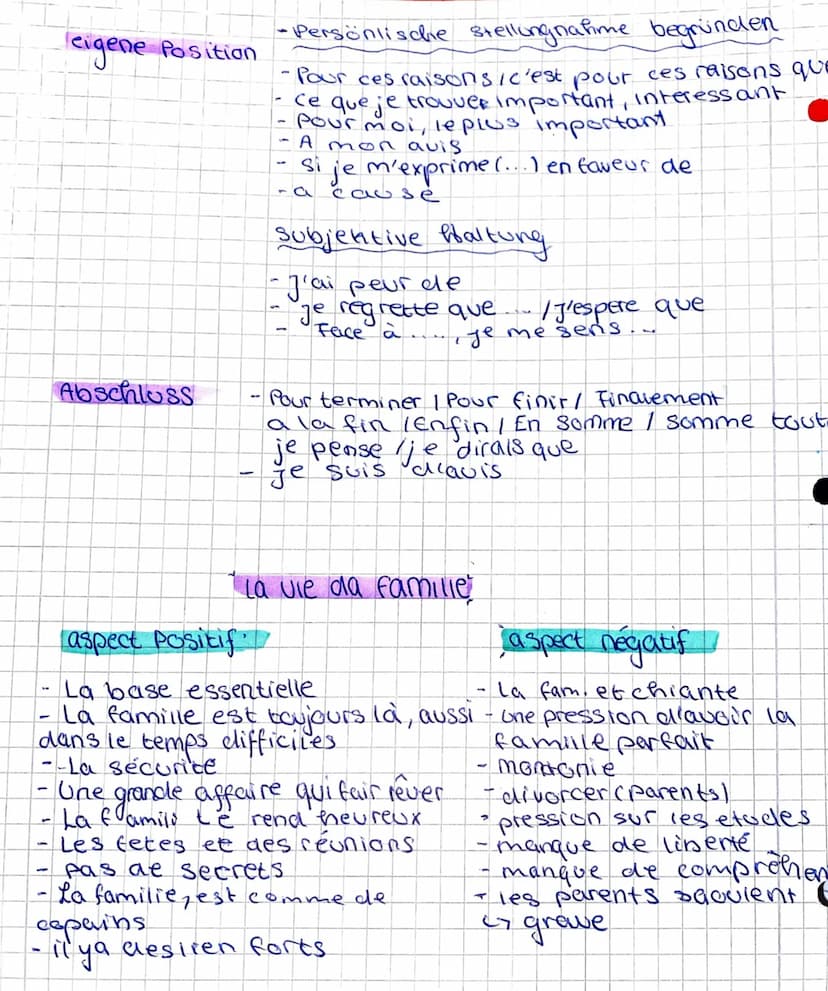 eigene Position
- Persönlische Stellungnahme begründen
- Pour ces raisons / c'est pour ces raisons que
- ce que je trouvee important, interessant
- pour moi, le plus important
- A mon avis
- si je m'exprime (...) en faveur de
- a cause
subjektive Haltung
- J'ai peur de
- je regrette que ... / J'espere que
- Face à ...., je me sens ...
Abschluss
- Pour terminer / Pour finir / Finalement
a la fin / Enfin / En somme / somme tout
je pense / je dirais que
- je suis d'avis
"La vie da famille"
aspect positif:
- La base essentielle
- La famille est toujours là, aussi
dans le temps difficiles
- La sécurité
- Une grande affaire qui fair rêver
- La famils te rend heureux
- Les fetes et des réunions
- pas de secrets
- La familie, est comme de
copains
- il ya des lien forts
aspect négatif
- la fam. et chiante
- une pression d'avoir la
famille parfait
- montonie
- divorcer (parents)
- pression sur les etudes
- manque de liberté
- manque de compréhen
- les parents
↳ grave